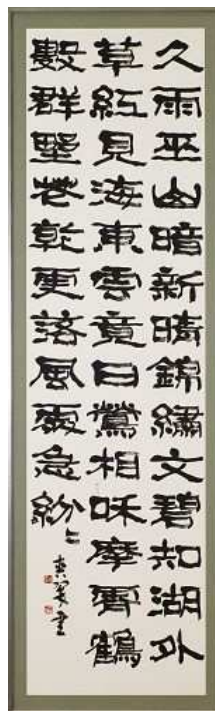 久雨巫山暗新晴錦繡文碧知湖外
草紅見海東雲竟日鶯相和摩霄鶴
數群野花乾更落風處急紛々
書